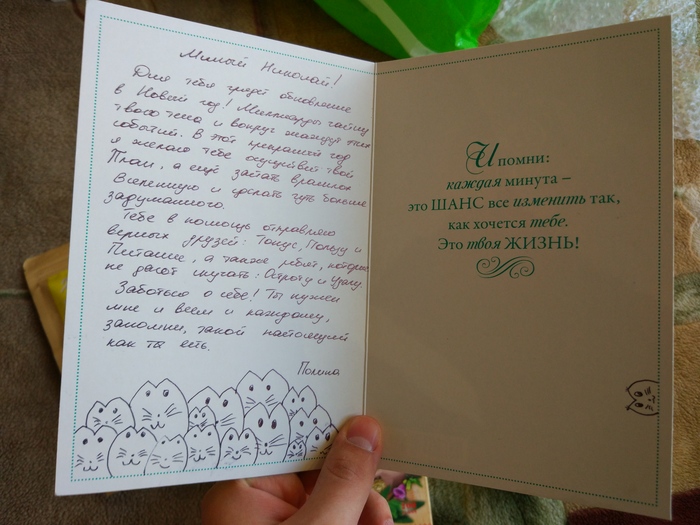 Милый Николай!
Для тебя грядёт обновление
в Новый год! Миллиарды частиц
твоего тела и вокруг жаждут этих
событий. В этот прекрасный год
я желаю тебе осуществить твой
План, а ещё зайати врасплох
Вселенную и сделать чуть больше
задуманного.
Тебе в помощь отправляю
верных друзей: Тонус, Пользу и
Питание, а также ребят, которые
не дают скучать: Остроту и Удачу.
Заботься о себе! Ты нужен
мне и всем и каждому,
запомни, такой настоящий
как ты есть.
Полина
И помни:
каждая минута –
это ШАНС все изменить так,
как хочется тебе.
Это твоя ЖИЗНЬ!